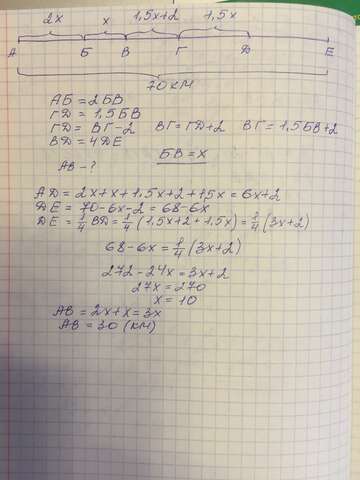 2х х 1,5х+2 1,5х
А Б В Г Д Е
70 КМ
АБ = 2БВ
ГД = 1,5БВ
ГД = ВГ-2 ВГ=ГД+2 ВГ=1,5БВ+2
ВД = 4ДЕ
БВ=х
АВ - ?
АД = 2х+х+1,5х+2+1,5х = 6х+2
ДЕ = 70-6х-2 = 68-6х
ДЕ = 1/4 ВД = 1/4 (1,5х+2+1,5х) = 1/4 (3х+2)
68-6х = 1/4 (3х+2)
272-24х = 3х+2
27х = 270
х = 10
АВ = 2х+х = 3х
АВ = 30 (КМ)